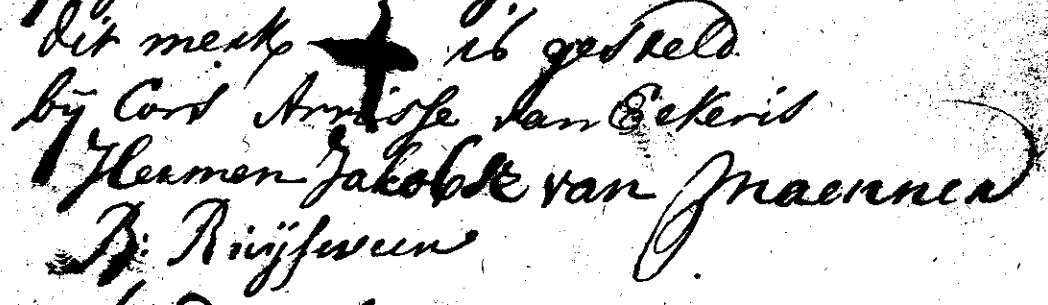 dit merk is gesteld
bij Cors Arrisse van Eekeris
Hermen Jakobse van Maennen
B: Ruijsween